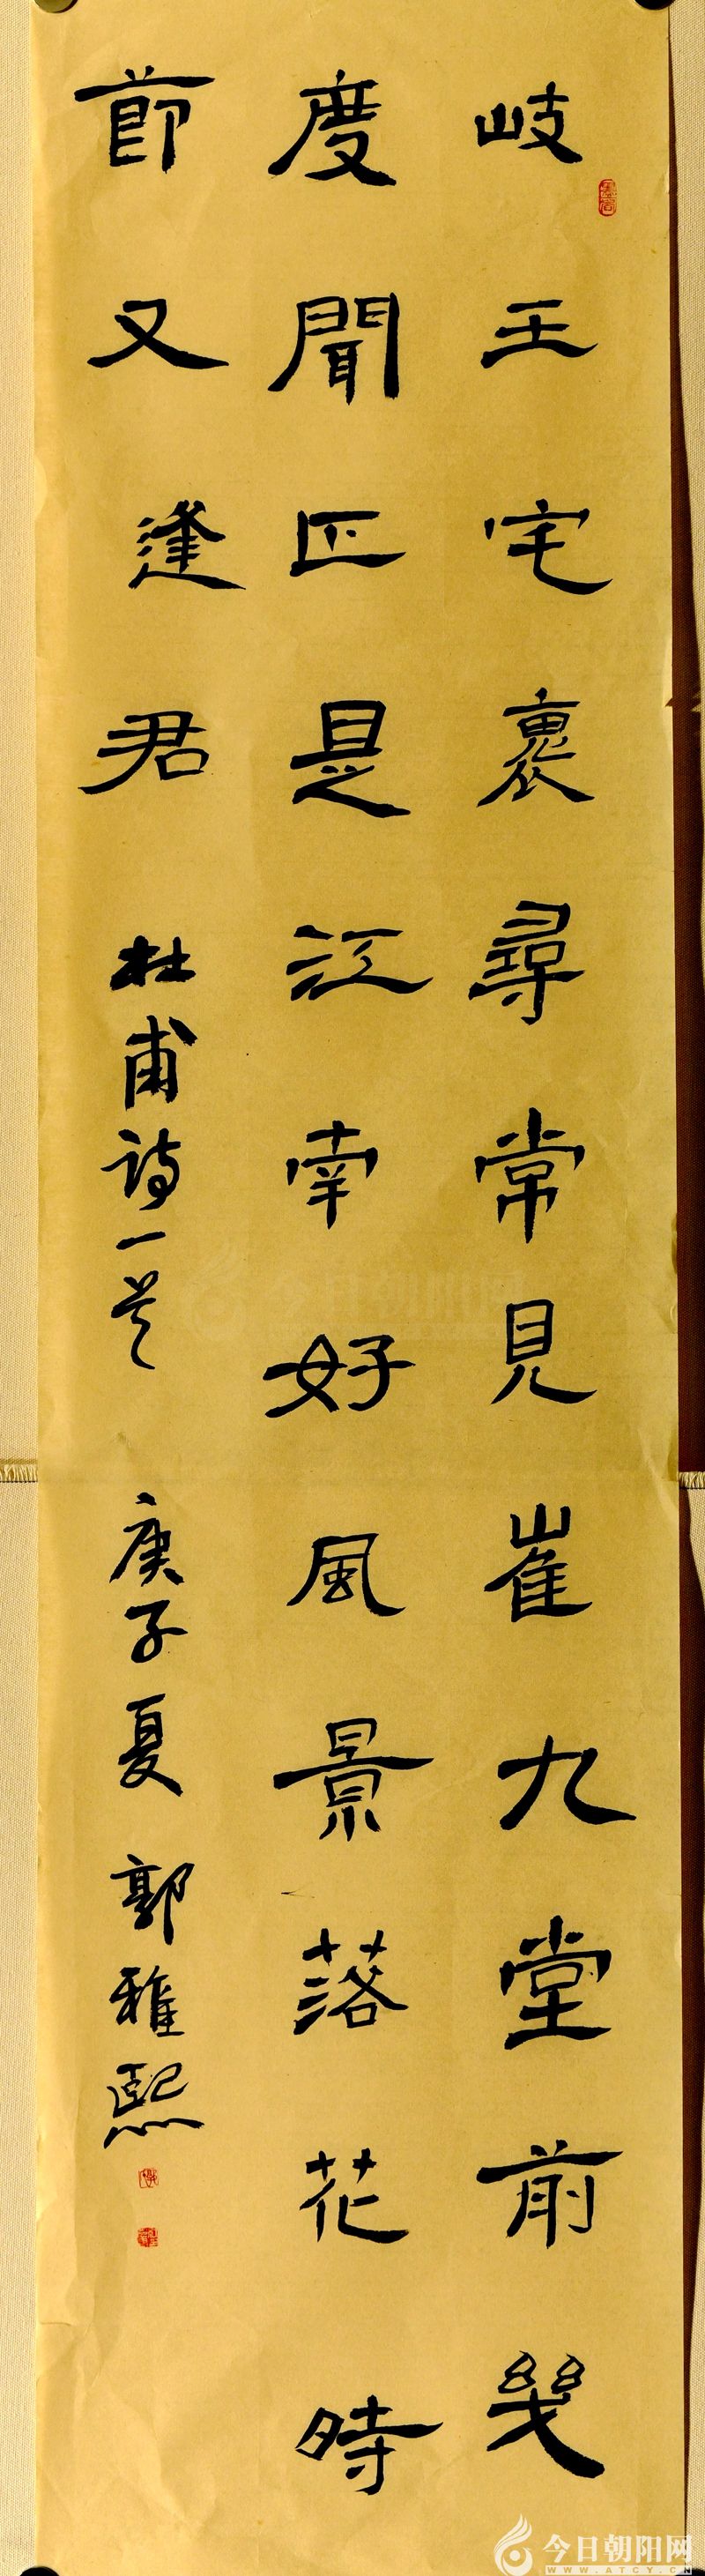 岐王宅裏尋常見崔九堂前幾
度聞正是江南好風景落花時
節又逢君 杜甫詩一首 庚子夏 郭雅熙
今日朝阳网
WWW.ATCY.CN